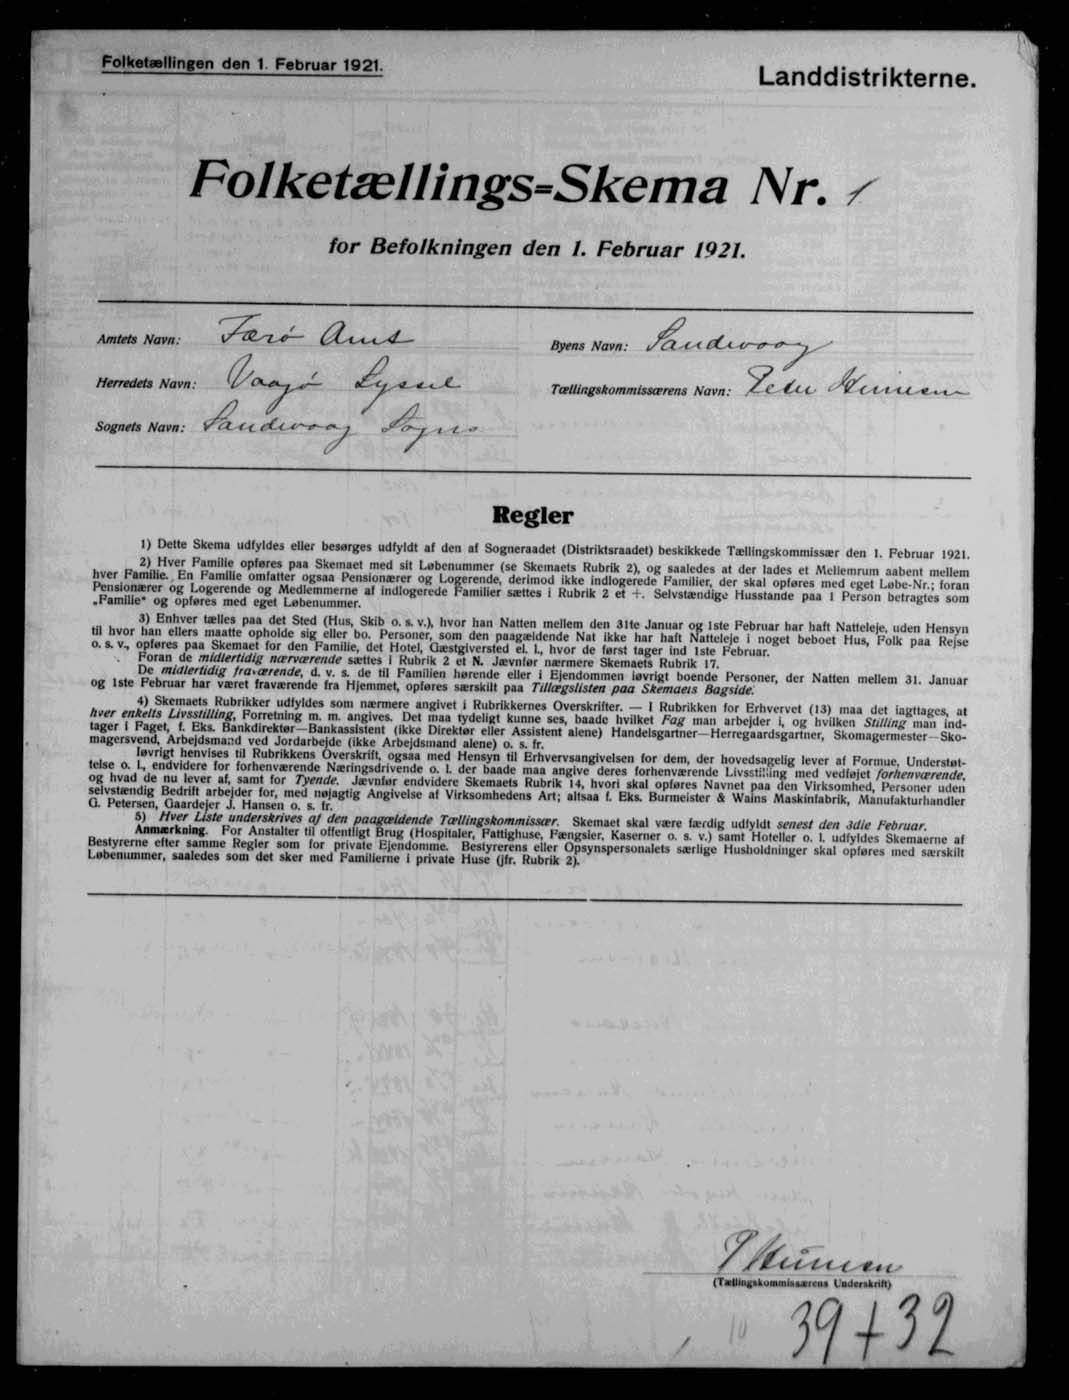 Folketællingen den 1. Februar 1921.
Landdistrikterne.
Folketællings=Skema Nr. 1
for Befolkningen den 1. Februar 1921.
Amtets Navn: Færø Amt
Byens Navn: Sandevaag
Herredets Navn: Vaagø Syssel
Tællingskommissærens Navn: Peter Heinesen
Sognets Navn: Sandevaag Sogns
Regler
1) Dette Skema udfyldes eller besørges udfyldt af den af Sogneraadet (Distriktsraadet) beskikkede Tællingskommissær den 1. Februar 1921.
2) Hver Familie opføres paa Skemaet med sit Løbenummer (se Skemaets Rubrik 2), og saaledes at der lades et Mellemrum aabent mellem
hver Familie. En Familie omfatter ogsaa Pensionærer og Logerende, derimod ikke indlogerede Familier, der skal opføres med eget Løbe-Nr.; foran
Pensionærer og Logerende og Medlemmerne af indlogerede Familier sættes i Rubrik 2 et +. Selvstændige Husstande paa 1 Person betragtes som
„Familie" og opføres med eget Løbenummer.
3) Enhver tælles paa det Sted (Hus, Skib o. s. v.), hvor han Natten mellem den 31te Januar og 1ste Februar har haft Natteleje, uden Hensyn
til hvor han ellers maatte opholde sig eller bo. Personer, som den paagældende Nat ikke har haft Natteleje i noget beboet Hus, Folk paa Rejse
o. s. v., opføres paa Skemaet for den Familie, det Hotel, Gæstgiversted el. l., hvor de først tager ind 1ste Februar.
Foran de midlertidig nærværende sættes i Rubrik 2 et N. Jævnfør nærmere Skemaets Rubrik 17.
De midlertidig fraværende, d. v. s. de til Familien hørende eller i Ejendommen iøvrigt boende Personer, der Natten mellem 31. Januar
og 1ste Februar har været fraværende fra Hjemmet, opføres særskilt paa Tillægslisten paa Skemaets Bagside.
4) Skemaets Rubrikker udfyldes som nærmere angivet i Rubrikkernes Overskrifter. — I Rubrikken for Erhvervet (13) maa det iagttages, at
hver enkelts Livsstilling, Forretning m. m. angives. Det maa tydeligt kunne ses, baade hvilket Fag man arbejder i, og hvilken Stilling man ind-
tager i Faget, f. Eks. Bankdirektør—Bankassistent (ikke Direktør eller Assistent alene) Handelsgartner—Herregaardsgartner, Skomagermester—Sko-
magersvend, Arbejdsmand ved Jordarbejde (ikke Arbejdsmand alene) o. s. fr.
Iøvrigt henvises til Rubrikkens Overskrift, ogsaa med Hensyn til Erhvervsangivelsen for dem, der hovedsagelig lever af Formue, Understøt-
telse o. l., endvidere for forhenværende Næringsdrivende o. l. der baade maa angive deres forhenværende Livsstilling med vedføjet forhenværende,
og hvad de nu lever af, samt for Tyende. Jævnfør endvidere Skemaets Rubrik 14, hvori skal opføres Navnet paa den Virksomhed, Personer uden
selvstændig Bedrift arbejder for, med nøjagtig Angivelse af Virksomhedens Art; altsaa f. Eks. Burmeister & Wains Maskinfabrik, Manufakturhandler
G. Petersen, Gaardejer J. Hansen o. s. fr.
5) Hver Liste underskrives af den paagældende Tællingskommissær. Skemaet skal være færdig udfyldt senest den 3die Februar.
Anmærkning. For Anstalter til offentligt Brug (Hospitaler, Fattighuse, Fængsler, Kaserner o. s. v.) samt Hoteller o. l. udfyldes Skemaerne af
Bestyrerne efter samme Regler som for private Ejendomme. Bestyrerens eller Opsynspersonalets særlige Husholdninger skal opføres med særskilt
Løbenummer, saaledes som det sker med Familierne i private Huse (jfr. Rubrik 2).
P Heinesen
(Tællingskommissærens Underskrift)
10
39+32